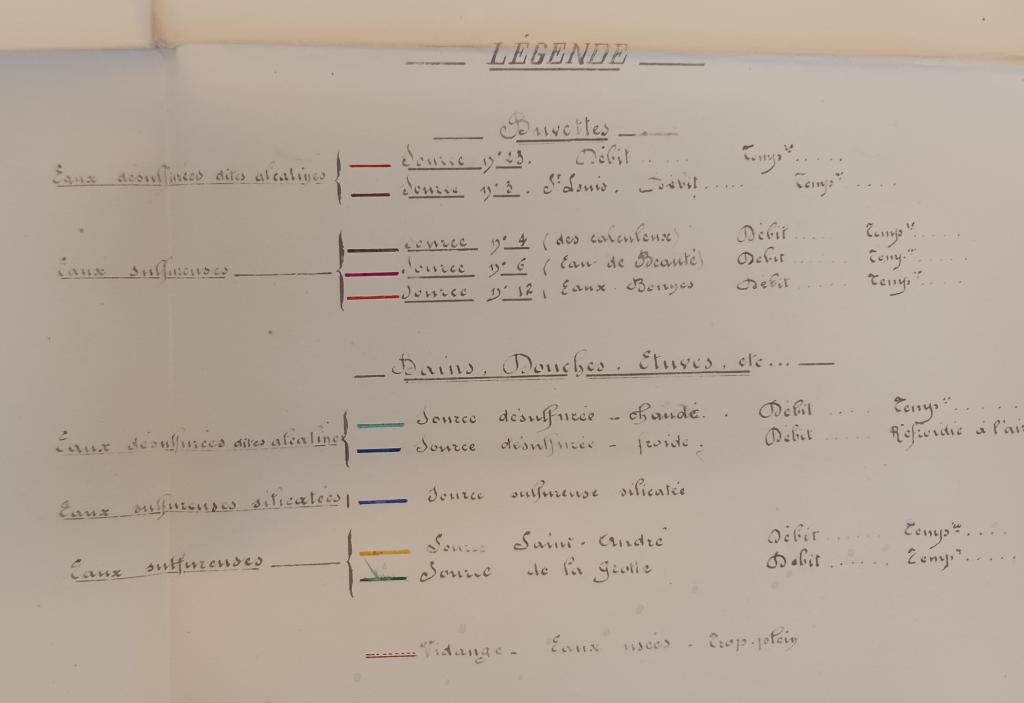 LÉGENDE
Buvettes
Eaux désulfurées dites alcalines
Source N° 23. Débit ..... Temp.re .....
Source N° 3. St Louis. Débit ..... Temp.re ....
Eaux sulfureuses
Source N° 4 (des calculeux) Débit ..... Temp.re .....
Source N° 6 (Eau de Beauté) Débit ..... Temp.re .....
Source N° 12, Eaux-Bonnes Débit ..... Temp.re .....
Bains, Douches, Etuves, etc...
Eaux désulfurées dites alcaline
Source désulfurée - chaude. Débit ..... Temp.re .....
Source désulfurée - froide. Débit ..... Refroidie à l'air
Eaux sulfureuses silicatées
Source sulfureuse silicatée
Eaux sulfureuses
Source Saint-André Débit ..... Temp.re ....
Source de la Grotte Débit ...... Temp.re .....
Vidange - Eaux usées - Trop-plein